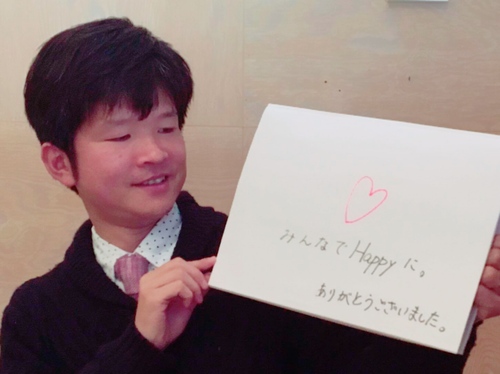 みんなでHappyに。
ありがとうございました。